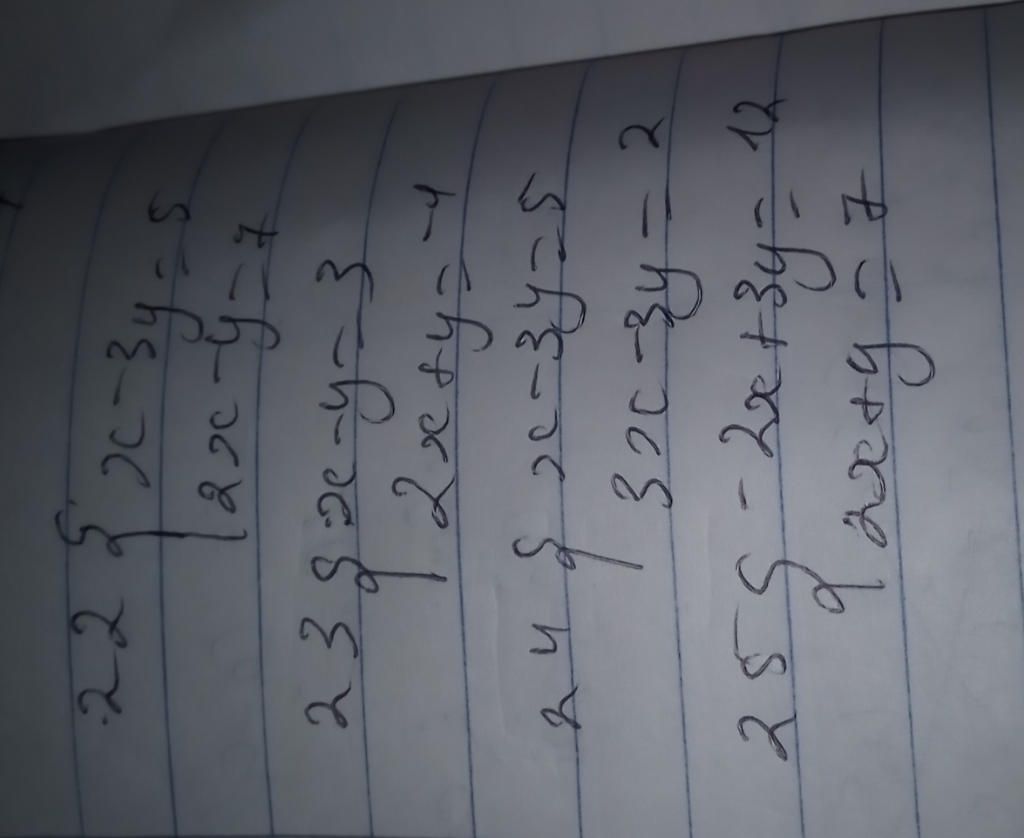 22 { x - 3y = 5
2x - y = 7
23 { x - y = 3
2x + y = -4
24 { x - 3y = 5
3x - 3y = 2
25 { -2x + 3y = 12
2x + y = 7